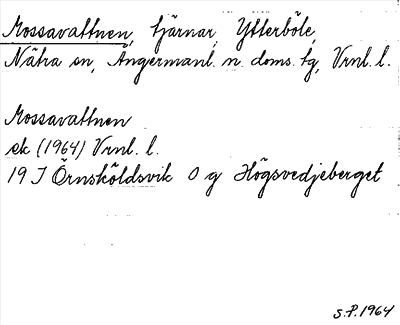 Mossavattnen, tjärnar, Ytterböle,
Nätra sn, Ångermanl. n. doms. tg, Vrnl. l.
Mossavattnen
ek (1964) Vrnl. l.
19 J Örnsköldsvik O g Högsvedjeberget
S.P. 1964